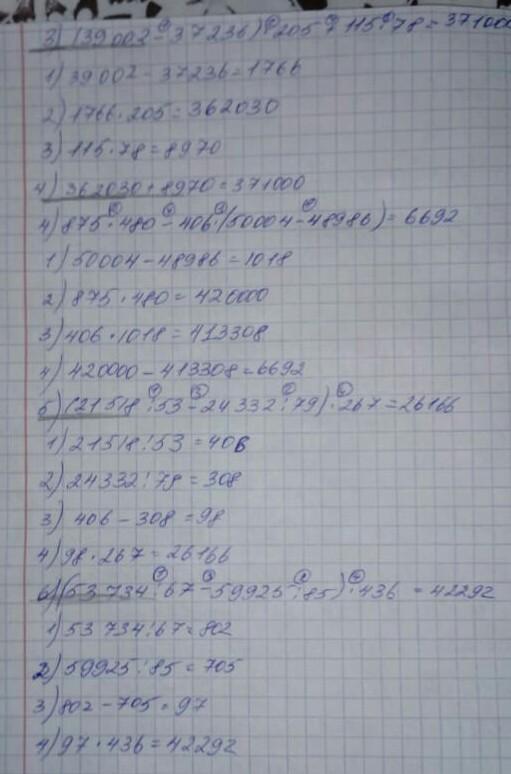 3) (39002 - 37236) · 205 + 115 · 78 = 371000
1) 39002 - 37236 = 1766
2) 1766 · 205 = 362030
3) 115 · 78 = 8970
4) 362030 + 8970 = 371000
4) 875 · 480 - 406 · (50004 - 48986) = 6692
1) 50004 - 48986 = 1018
2) 875 · 480 = 420000
3) 406 · 1018 = 413308
4) 420000 - 413308 = 6692
5) (21518 : 53 - 24332 : 79) · 267 = 26166
1) 21518 : 53 = 406
2) 24332 : 79 = 308
3) 406 - 308 = 98
4) 98 · 267 = 26166
6) (53 734 : 67 - 59925 : 85) · 436 = 42292
1) 53 734 : 67 = 802
2) 59925 : 85 = 705
3) 802 - 705 = 97
4) 97 · 436 = 42292